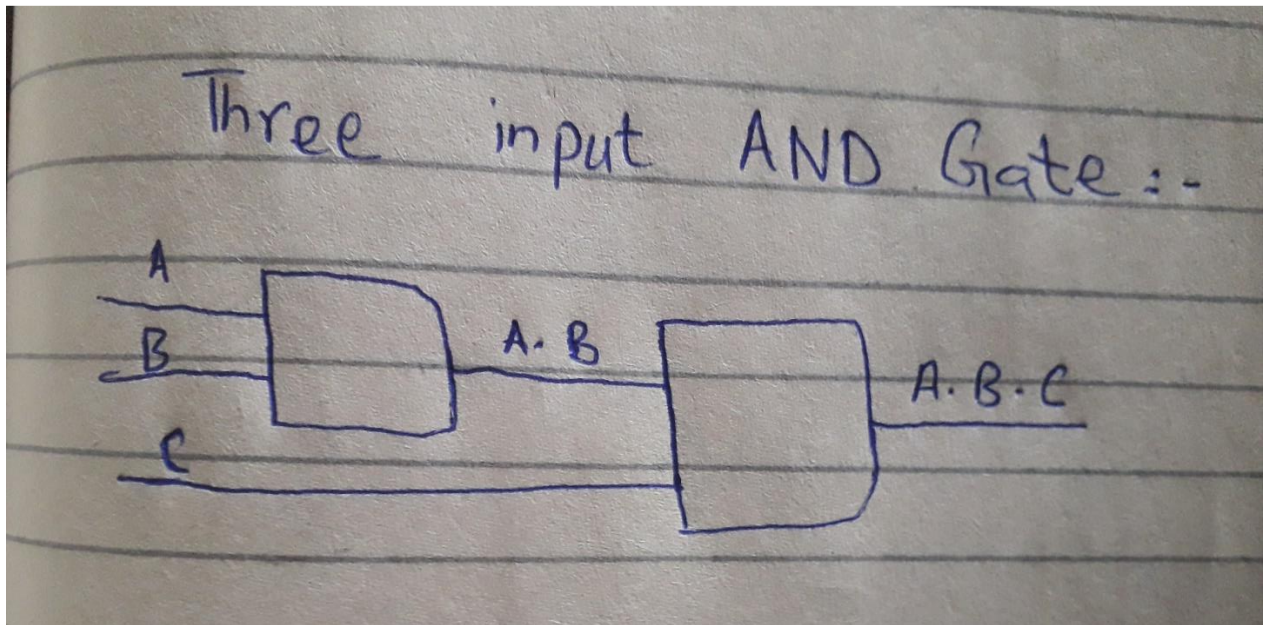 Three input AND Gate :-
A
B
A. B
A. B. C
C